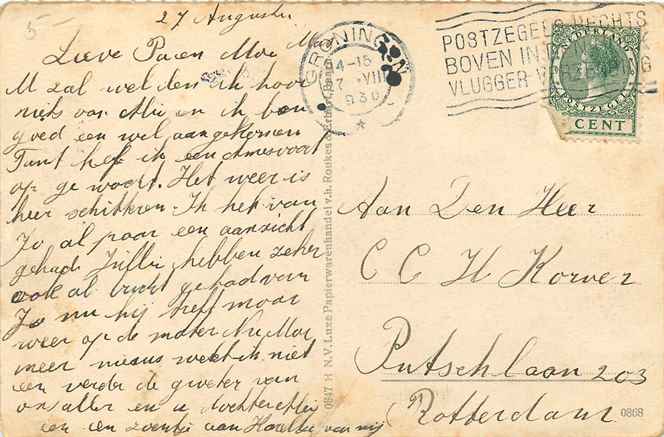 27 Augustus
Lieve Pa en Moe
M zal wel den ik hoor
niets van Mie en ik ben
goed en wel aangekomen
Tant hef in een Amesvoort
op ge wogt. Het weer is
hier schitteren. Ik heb van
Jo al paar een aanzicht
gehad Jullie hebben zeker
ook al brief gehad van
Jo nu hij treft maar
weer op de mater Nu Moe
meer nieuws weet ik niet
en verder de groeten van
ons allen en u dochter Mie
en een zoentje aan van mij
5-
GRONINGEN
4-15
VIII
1930
POSTZEGELS RECHTS
BOVEN IN
VLUGGER
NEDERLAND
POSTZEGEL
CENT
0847 H N.V. Luxe Papierwarenhandel v.h. Roukes & Erhart, Baarn
Aan Den Heer
C C H Korver
Putschlaan 203
Rotterdam
0868